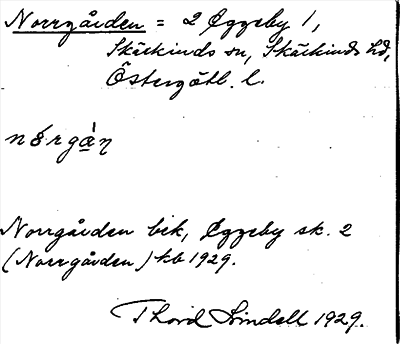 Norrgården = 2 Eggeby 1,
Skärkinds sn, Skärkinds hd,
Östergötl. l.
nórgàn
Norrgården bek, Eggeby sk. 2
(Norrgården) kb 1929.
Thord Lindell 1929.